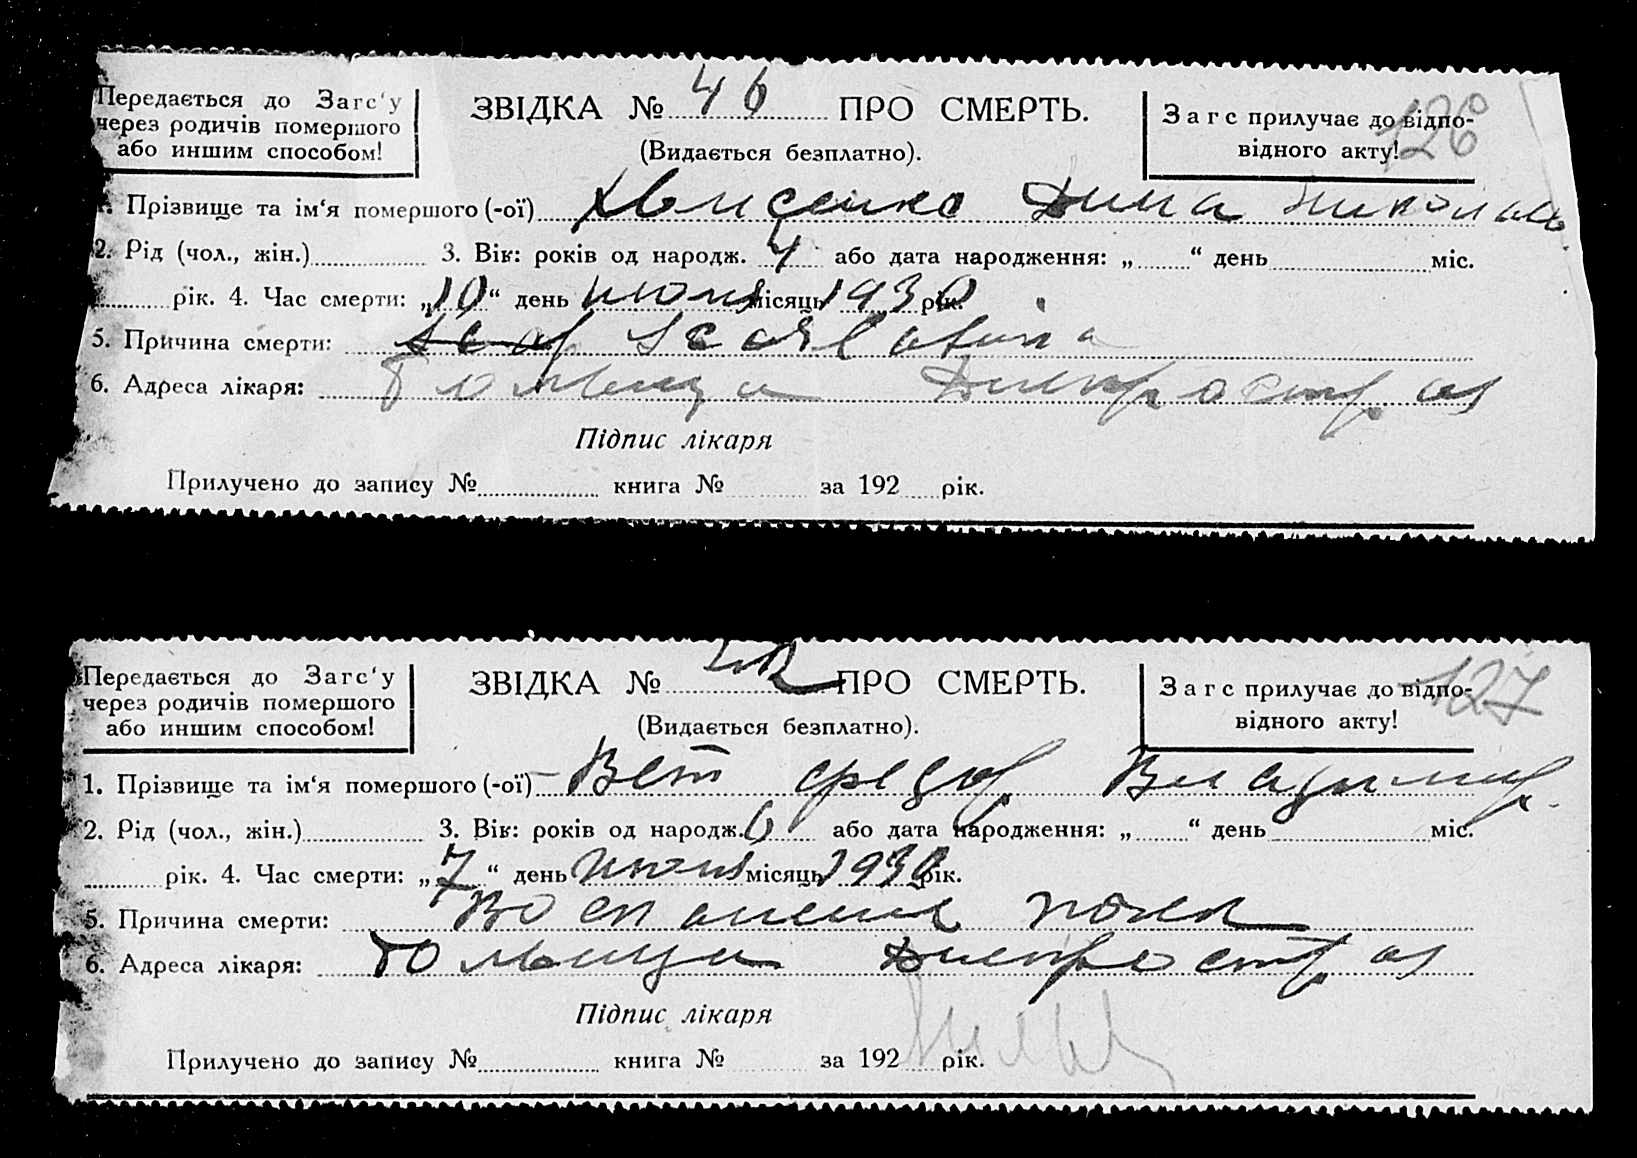 Передається до Загс'у
через родичів помершого
або иншим способом!
ЗВІДКА № 46 ПРО СМЕРТЬ.
(Видається безплатно).
Загс прилучає до відпо-
відного акту!
126
1. Прізвище та ім'я помершого (-ої) Дина
2. Рід (чол., жін.) 3. Вік: років од народж. 4 або дата народження: „ “ день міс.
рік. 4. Час смерти: „10“ день июля місяць 1930 рік.
5. Причина смерти: scarlatina
6. Адреса лікаря: больница Днепрострой
Підпис лікаря
Прилучено до запису № книга № за 192 рік.
Передається до Загс'у
через родичів помершого
або иншим способом!
ЗВІДКА № ПРО СМЕРТЬ.
(Видається безплатно).
Загс прилучає до відпо-
відного акту!
127
1. Прізвище та ім'я помершого (-ої) Владимир
2. Рід (чол., жін.) 3. Вік: років од народж. 6 або дата народження: „ “ день міс.
рік. 4. Час смерти: „7“ день июля місяць 1930 рік.
5. Причина смерти: Воспаление почек
6. Адреса лікаря: больница Днепрострой
Підпис лікаря
Прилучено до запису № книга № за 192 рік.